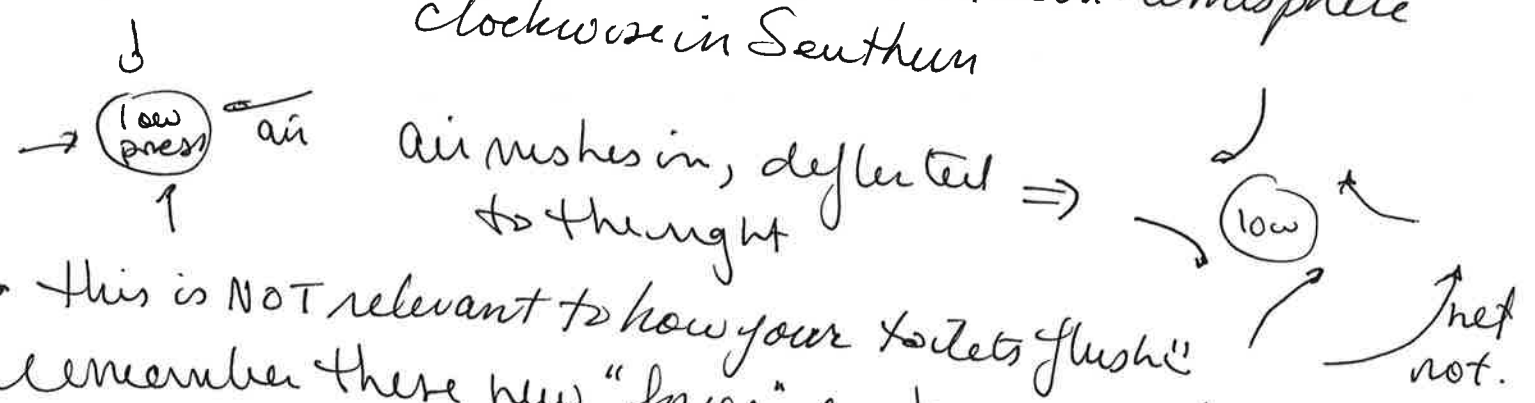 hemisphere
clockwise in Southern
low
press
air
air rushes in, deflected ⇒
to the right
low
• this is NOT relevant to how your toilets flush ü
net
rot.
remember these new "forces"